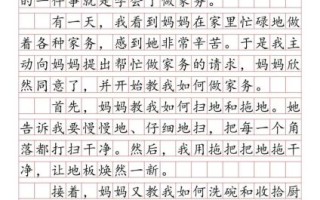 的一件事就是学会了做家务。
有一天，我看到妈妈在家里忙碌地做
着各种家务，感到她非常辛苦。于是我主
动向妈妈提出帮忙做家务的请求，妈妈欣
然同意了，并开始教我如何做家务。
首先，妈妈教我如何扫地和拖地。她
告诉我要慢慢地、仔细地扫，把每一个角
落都打扫干净。然后，我用拖把把地拖干
净，让地板焕然一新。
接着，妈妈又教我如何洗碗和收拾厨